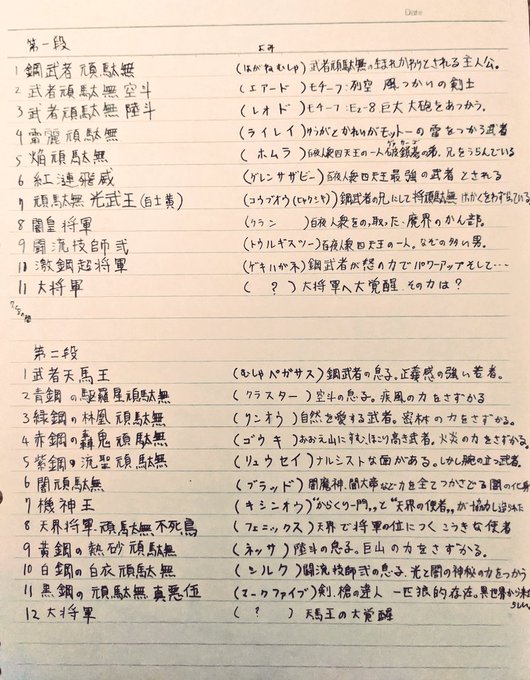 Date
第一段 よみ
1 鋼武者 頑駄無 (はがねむしゃ) 武者頑駄無の生まれかわりとされる主人公。
2 武者頑駄無 空斗 (エアード) モチーフ:列空 風つかいの剣士
3 武者頑駄無 陸斗 (レオド) モチーフ:Ez-8 巨大大砲をあつかう。
4 雷麗頑駄無 (ライレイ) ゆうがとかれいがモットーの雷をつかう武者
5 焔頑駄無 (ホムラ) 百夜人衆四天王の一人破鎖者の弟。兄をうらんでいる
6 紅漣飛威 (グレンサザビー) 百夜人衆四天王最強の武者とされる
7 頑駄無 光武王(白士黄) (コウブオウ) 鋼武者の兄にして将頑駄無
8 闇皇将軍 (クラン) 百夜人衆をのっ取った魔界のかん部。
9 闘流技師弐 (トウルギスツー) 百夜人衆四天王の一人。なぞの多い男。
10 激鋼超将軍 (ゲキハガネ) 鋼武者が怒の力でパワーアップそして…
11 大将軍 (?) 大将軍へ大覚醒 その力は?
第二段
1 武者天馬王 (むしゃペガサス) 鋼武者の息子。正義感の強い若者。
2 青鋼の駆羅星頑駄無 (クラスター) 空斗の息子。疾風の力をさずかる
3 緑鋼の林凰頑駄無 (リンオウ) 自然を愛する武者。密林の力をさずかる。
4 赤鋼の轟鬼頑駄無 (ゴウキ) おおえ山にすむ、ほこり高き武者。火炎の力をさずかる。
5 紫鋼の流聖頑駄無 (リュウセイ) ナルシストな面がある。しかし腕の立つ武者。
6 闇頑駄無 (ブラッド) 闇魔神、闇大帝など力を全てつかさどる闇の化身
7 機神王 (キシンオウ) "からくり一門"と"天界の使者"が協力し造られた
8 天界将軍 頑駄無不死鳥 (フェニックス) 天界で将軍の位につくこうきな使者
9 黄鋼の熱砂頑駄無 (ネッサ) 陸斗の息子。巨山の力をさずかる。
10 白鋼の白衣頑駄無 (シルク) 闘流技師弐の息子。光と闇の神秘の力をつかう
11 黒鋼の頑駄無真悪伍 (マークファイブ) 剣、槍の達人 一匹狼的存在。異世界から来たらしい
12 大将軍 (?) 天馬王の大覚醒